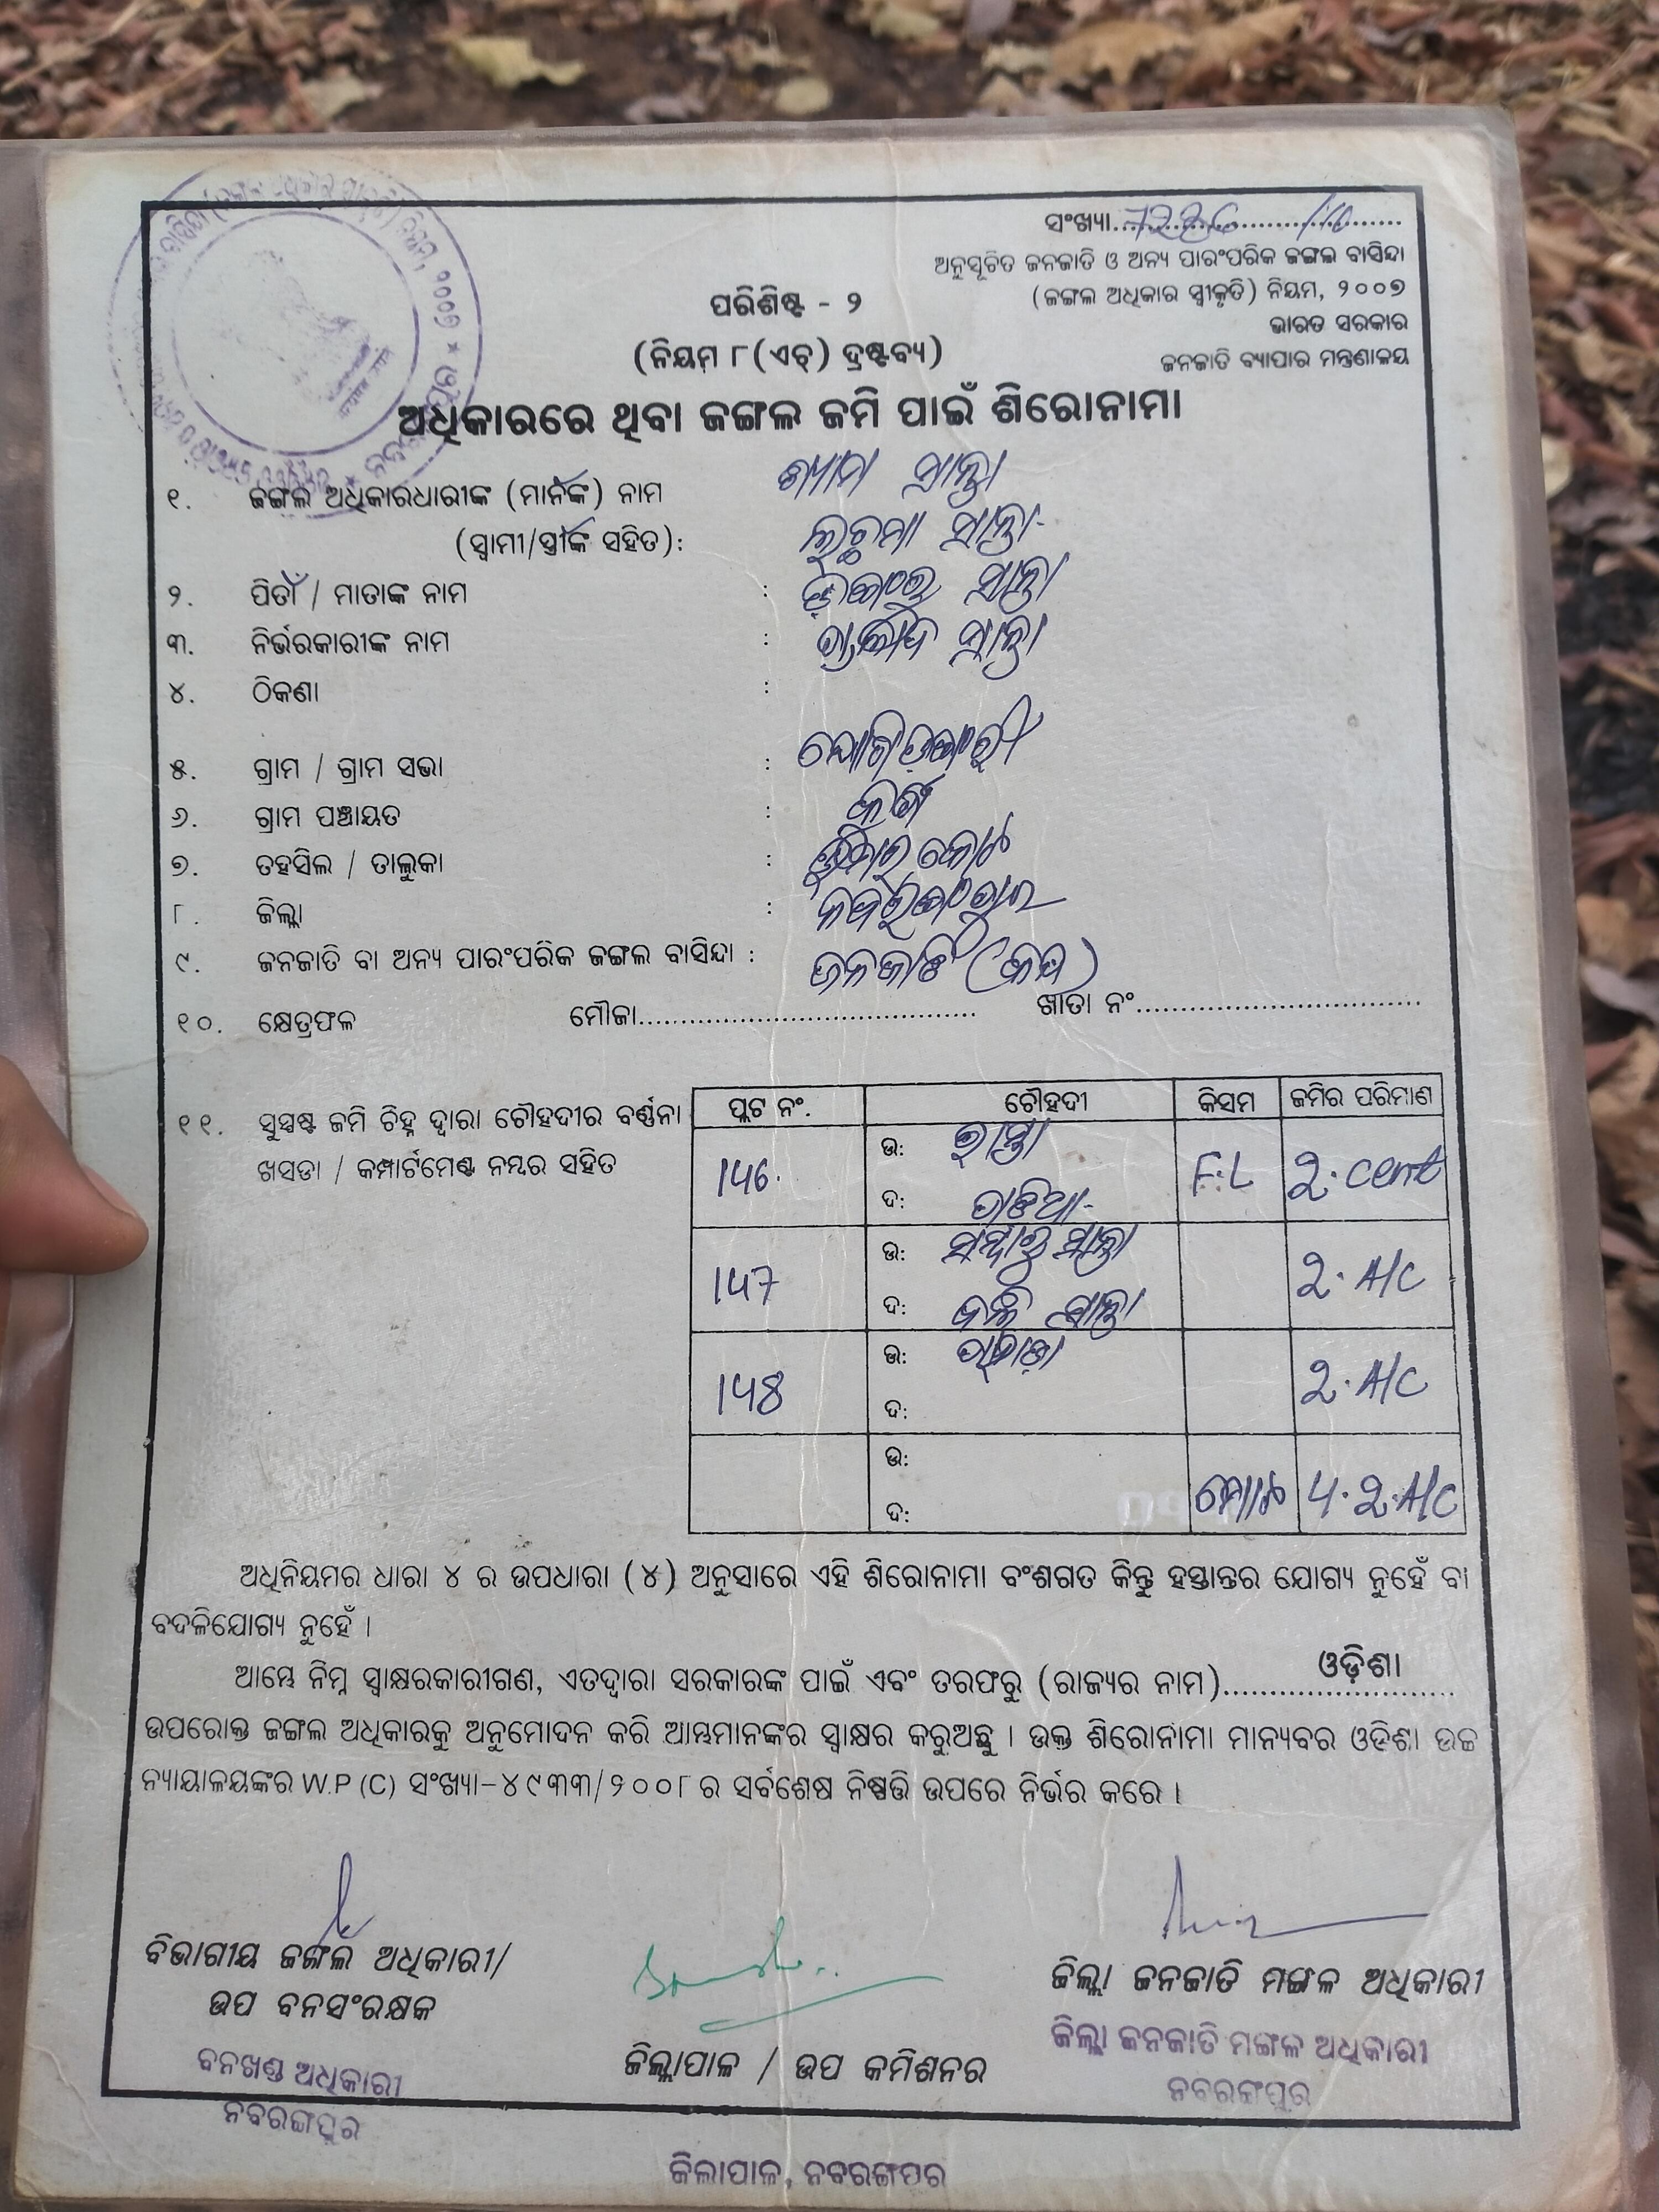 ସଂଖ୍ୟା
ଅନୁସୂଚିତ ଜନଜାତି ଓ ଅନ୍ୟ ପାରଂପରିକ ଜଙ୍ଗଲ ବାସିନ୍ଦା
(ଜଙ୍ଗଲ ଅଧିକାର ସ୍ୱୀକୃତି) ନିୟମ, ୨୦୦୭
ଭାରତ ସରକାର
ଜନଜାତି ବ୍ୟାପାର ମନ୍ତ୍ରଣାଳୟ
ପରିଶିଷ୍ଟ - ୨
(ନିୟମ ୮(ଏଚ୍) ଦ୍ରଷ୍ଟବ୍ୟ)
ଅଧିକାରରେ ଥିବା ଜଙ୍ଗଲ ଜମି ପାଇଁ ଶିରୋନାମା
୧. ଜଙ୍ଗଲ ଅଧିକାରଧାରୀଙ୍କ (ମାନଙ୍କ) ନାମ ଶ୍ୟାମ ସାନ୍ତା
(ସ୍ୱାମୀ/ସ୍ତ୍ରୀଙ୍କ ସହିତ): ଲଛମା ସାନ୍ତା
୨. ପିତା / ମାତାଙ୍କ ନାମ : ସାନ୍ତା
୩. ନିର୍ଭରକାରୀଙ୍କ ନାମ : ସାନ୍ତା
୪. ଠିକଣା :
୫. ଗ୍ରାମ / ଗ୍ରାମ ସଭା :
୬. ଗ୍ରାମ ପଞ୍ଚାୟତ :
୭. ତହସିଲ / ତାଲୁକା :
୮. ଜିଲ୍ଲା : ନବରଙ୍ଗପୁର
୯. ଜନଜାତି ବା ଅନ୍ୟ ପାରଂପରିକ ଜଙ୍ଗଲ ବାସିନ୍ଦା : ଜନଜାତି (କନ୍ଧ)
୧୦. କ୍ଷେତ୍ରଫଳ ମୌଜା........................................ ଖାତା ନଂ..................................
୧୧. ସୁସ୍ପଷ୍ଟ ଜମି ଚିହ୍ନ ଦ୍ୱାରା ଚୌହଦୀର ବର୍ଣ୍ଣନା
ଖସଡା / କମ୍ପାର୍ଟମେଣ୍ଟ ନମ୍ବର ସହିତ
ପ୍ଲଟ ନଂ. ଚୌହଦୀ କିସମ ଜମିର ପରିମାଣ
146 ଉ: ରାସ୍ତା F.L 2. cent
ଦ:
147 ଉ: ସାନ୍ତା 2. A/C
ଦ: ସାନ୍ତା
148 ଉ: ପାହାଡ 2. A/C
ଦ:
ଉ: ମୋଟ 4.2.A/C
ଦ:
ଅଧିନିୟମର ଧାରା ୪ ର ଉପଧାରା (୪) ଅନୁସାରେ ଏହି ଶିରୋନାମା ବଂଶଗତ କିନ୍ତୁ ହସ୍ତାନ୍ତର ଯୋଗ୍ୟ ନୁହେଁ ବା
ବଦଳିଯୋଗ୍ୟ ନୁହେଁ ।
ଆମ୍ଭେ ନିମ୍ନ ସ୍ୱାକ୍ଷରକାରୀଗଣ, ଏତଦ୍ୱାରା ସରକାରଙ୍କ ପାଇଁ ଏବଂ ତରଫରୁ (ରାଜ୍ୟର ନାମ) ଓଡ଼ିଶା
ଉପରୋକ୍ତ ଜଙ୍ଗଲ ଅଧିକାରକୁ ଅନୁମୋଦନ କରି ଆମ୍ଭମାନଙ୍କର ସ୍ୱାକ୍ଷର କରୁଅଛୁ । ଉକ୍ତ ଶିରୋନାମା ମାନ୍ୟବର ଓଡିଶା ଉଚ୍ଚ
ନ୍ୟାୟାଳୟଙ୍କର W.P (C) ସଂଖ୍ୟା-୪୯୩୩/୨୦୦୮ ର ସର୍ବଶେଷ ନିଷ୍ପତ୍ତି ଉପରେ ନିର୍ଭର କରେ ।
ବିଭାଗୀୟ ଜଙ୍ଗଲ ଅଧିକାରୀ/
ଉପ ବନସଂରକ୍ଷକ
ବନଖଣ୍ଡ ଅଧିକାରୀ
ନବରଙ୍ଗପୁର
ଜିଲ୍ଲାପାଳ / ଉପ କମିଶନର
ଜିଲ୍ଲା ଜନଜାତି ମଙ୍ଗଳ ଅଧିକାରୀ
ଜିଲ୍ଲା ଜନଜାତି ମଙ୍ଗଳ ଅଧିକାରୀ
ନବରଙ୍ଗପୁର
ଜିଲାପାଳ, ନବରଙ୍ଗପୁର